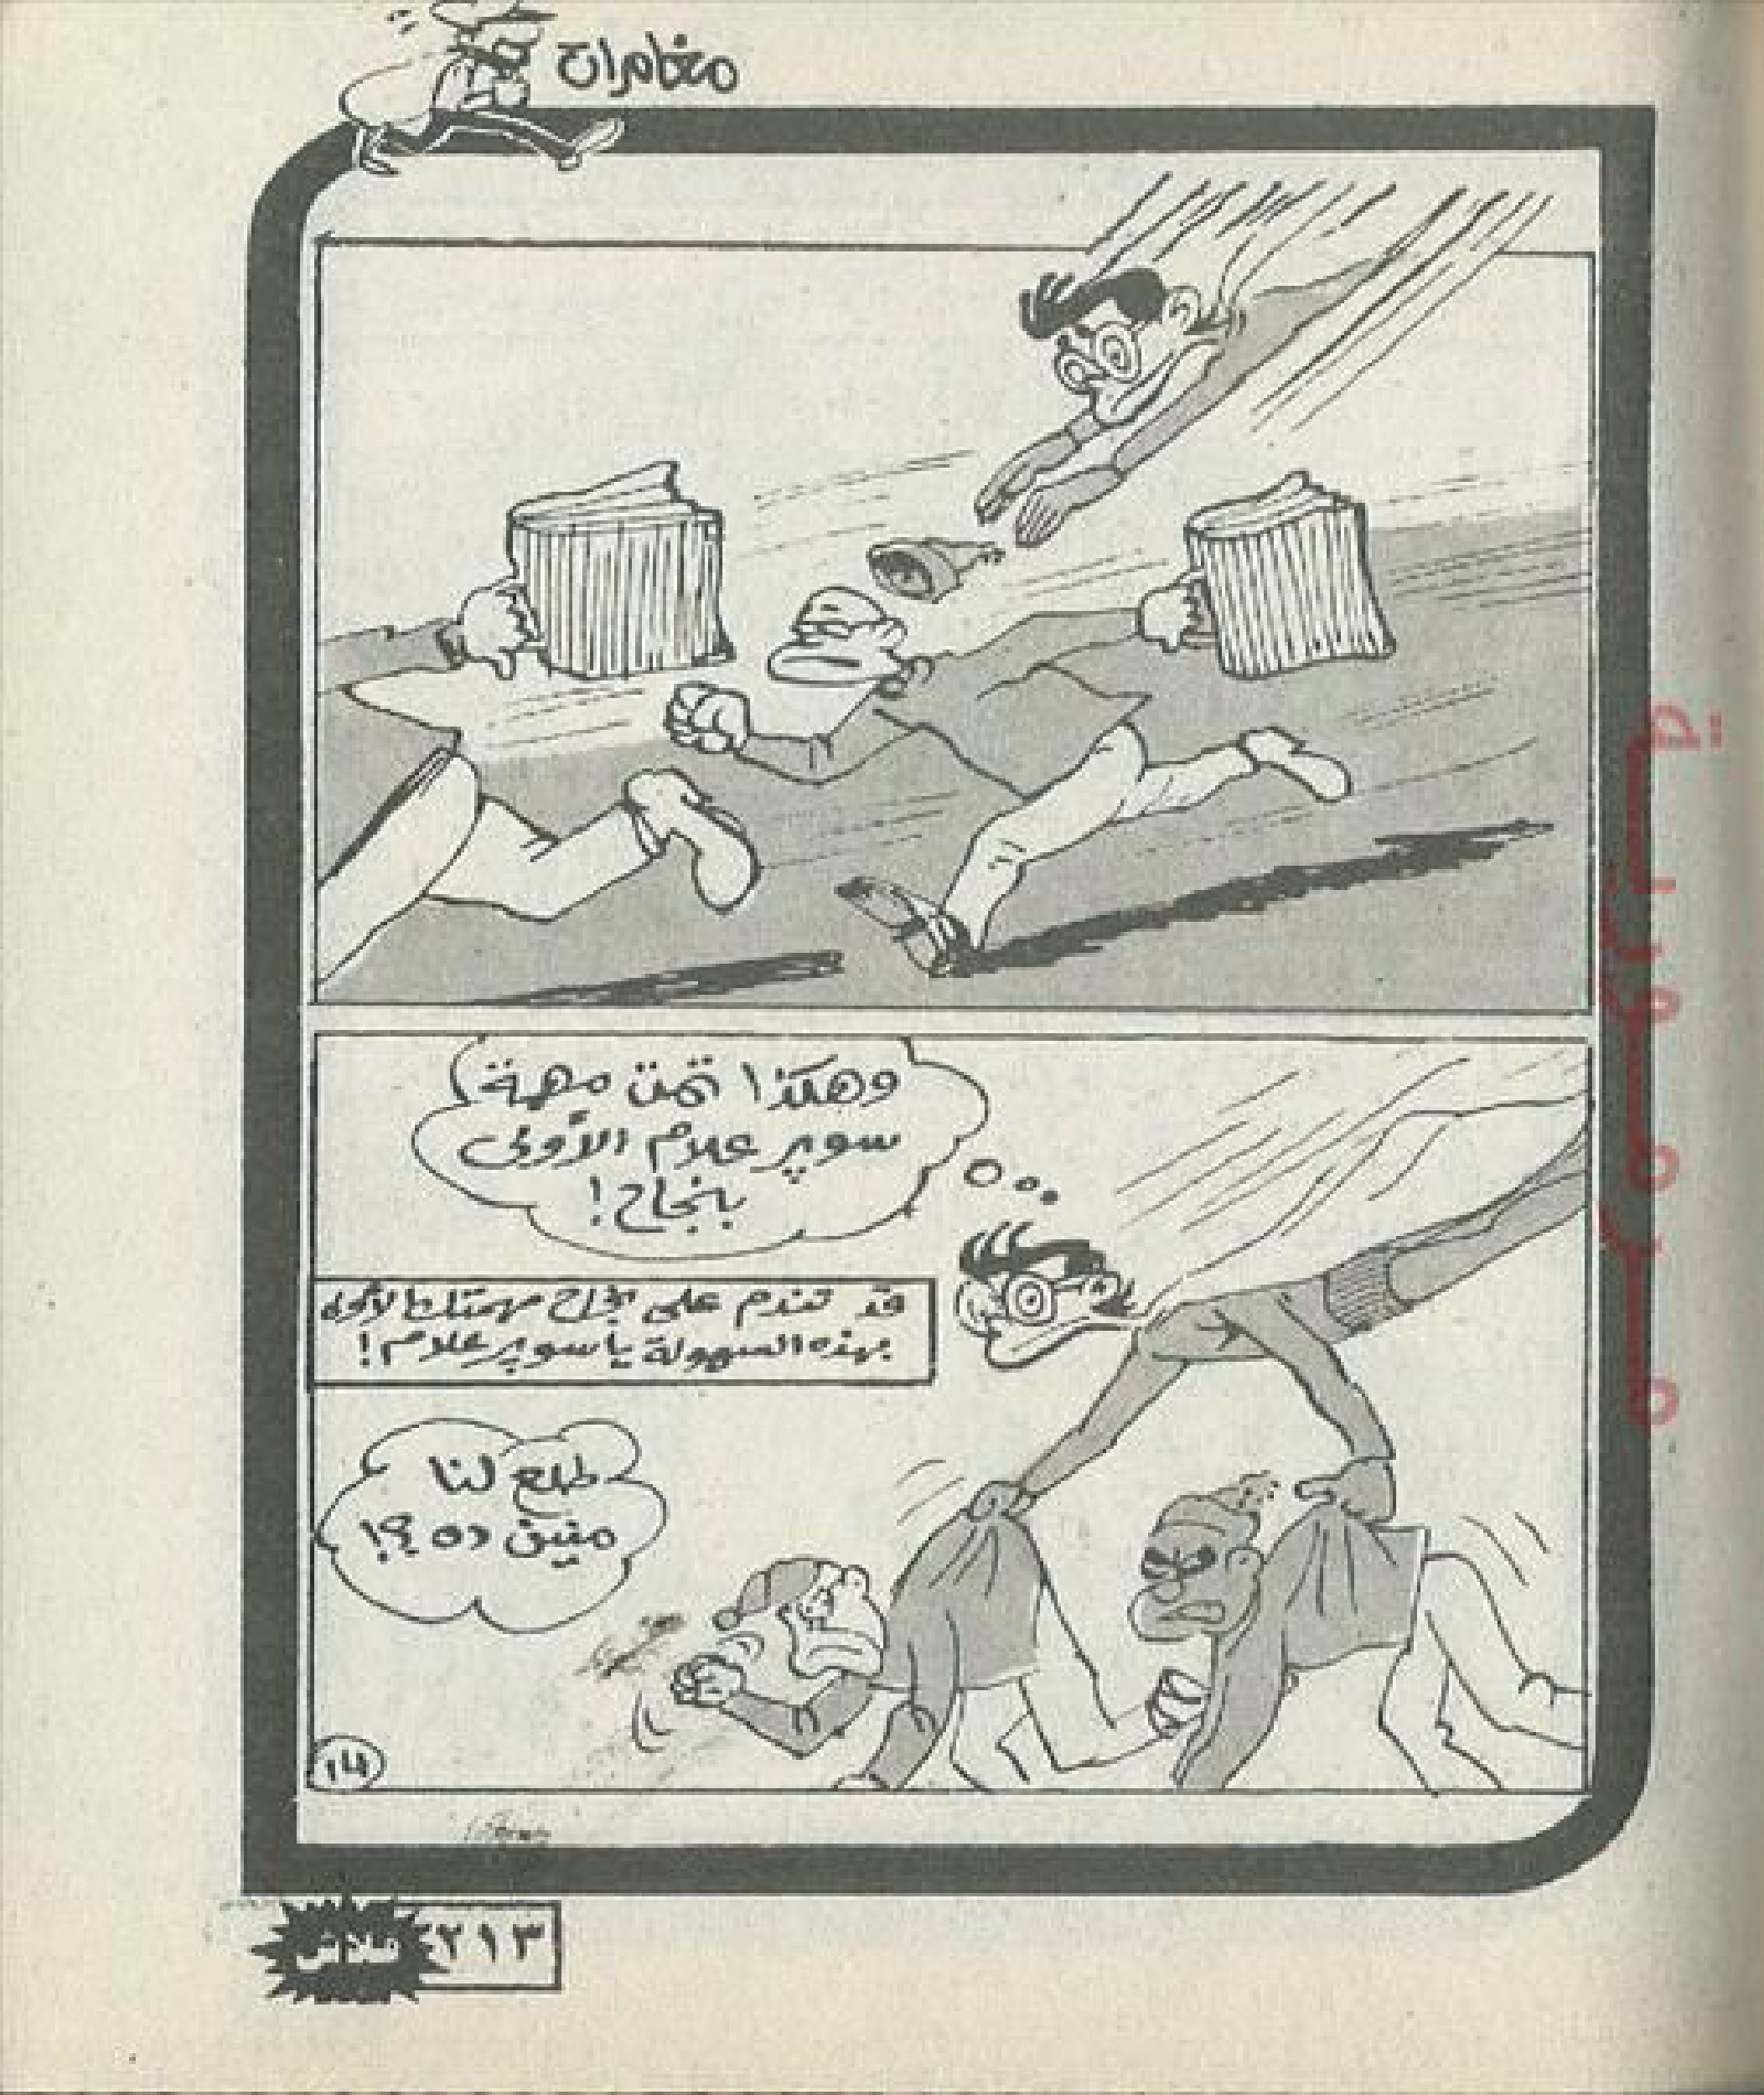 مغامرات
وهكذا تمت مهمة
سوبر علام الأولى
بنجاح!
قد تندم على نجاح مهمتك الأولى
بهذه السهولة يا سوبر علام!
طلع لنا
منين ده ؟!
١٤
فلاش ٢١٣